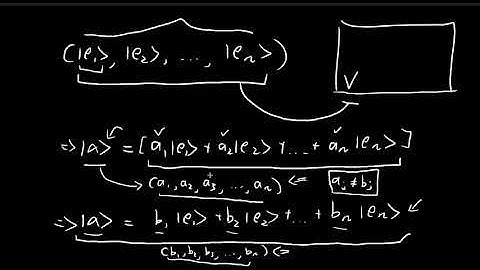 (|e₁>, |e₂>, ..., |eₙ>)
V
=> |a> = [a₁|e₁> + a₂|e₂> + ... + aₙ|eₙ>]
(a₁, a₂, a₃, ..., aₙ) <= aᵢ ≠ bᵢ
=> |a> = b₁|e₁> + b₂|e₂> + ... + bₙ|eₙ>
(b₁, b₂, b₃, ..., bₙ) <=